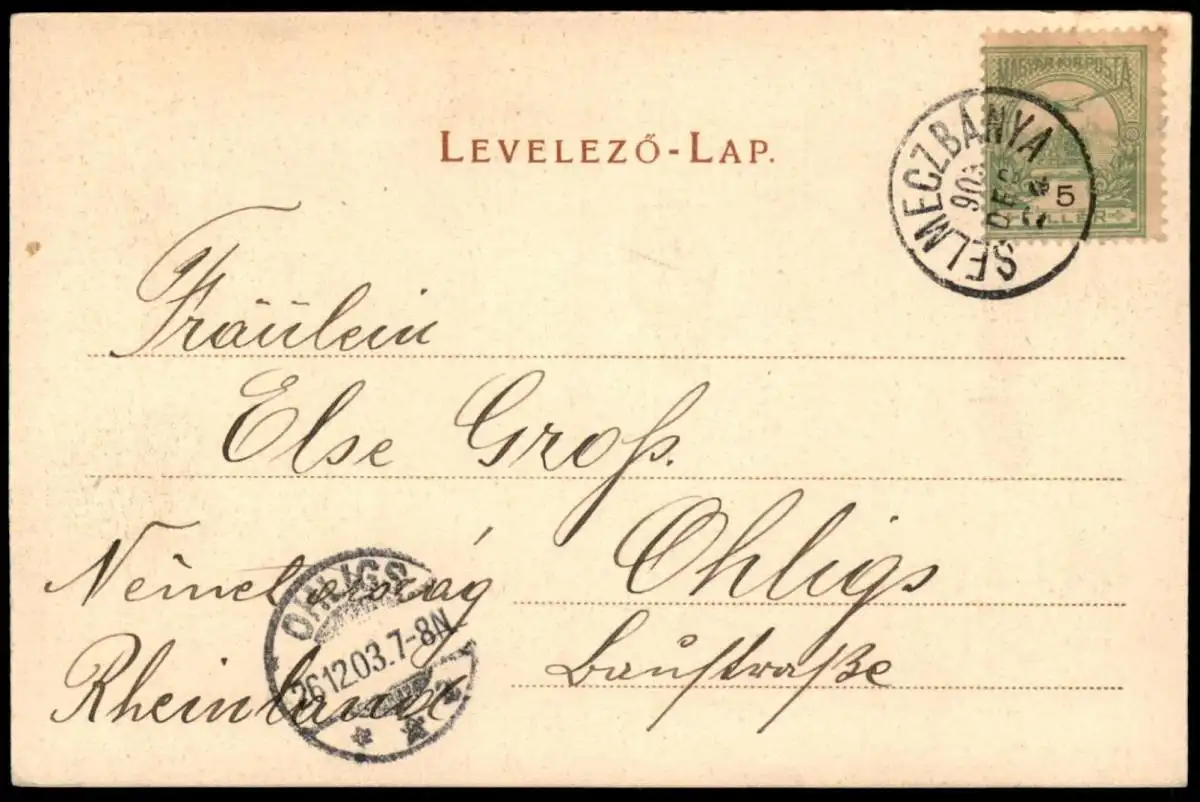 MAGYAR KIR. POSTA
5
FILLÉR
SELMECZBÁNYA
903
DEC
LEVELEZŐ-LAP.
Fräulein
Else Groß.
Ohligs
Németország
Rheinland
Baustraße
OHLIGS
26.12.03.7-8N.